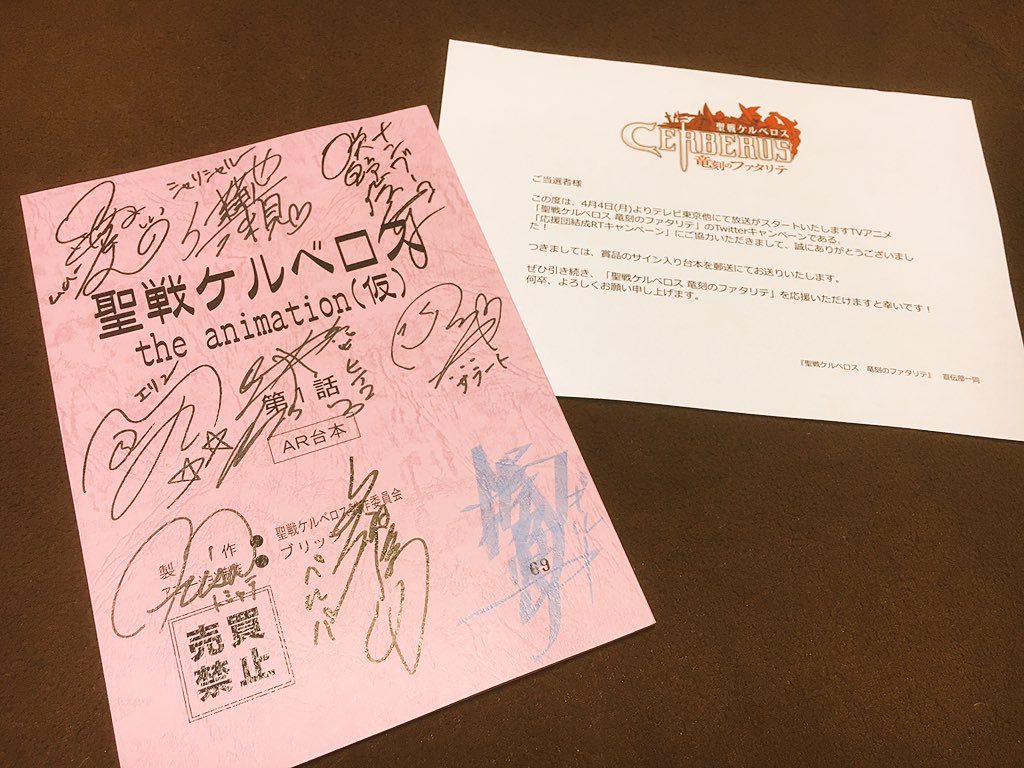 シャリシャルー
ナンブーコ
聖戦ケルベロス
the animation(仮)
エリン
第1話
AR台本
サラート
聖戦ケルベロス製作委員会
製作
ブリッ
トミャテ
69
売買
禁止
聖戦ケルベロス
CERBERUS
竜刻のファタリテ
ご当選者様
この度は、4月4日(月)よりテレビ東京他にて放送がスタートいたしますTVアニメ
「聖戦ケルベロス 竜刻のファタリテ」のTwitterキャンペーンである、
「応援団結成RTキャンペーン」にご協力いただきまして、誠にありがとうございまし
た!
つきましては、賞品のサイン入り台本を郵送にてお送りいたします。
ぜひ引き続き、「聖戦ケルベロス 竜刻のファタリテ」を応援いただけますと幸いです!
何卒、よろしくお願い申し上げます。
『聖戦ケルベロス 竜刻のファタリテ』 宣伝部一同